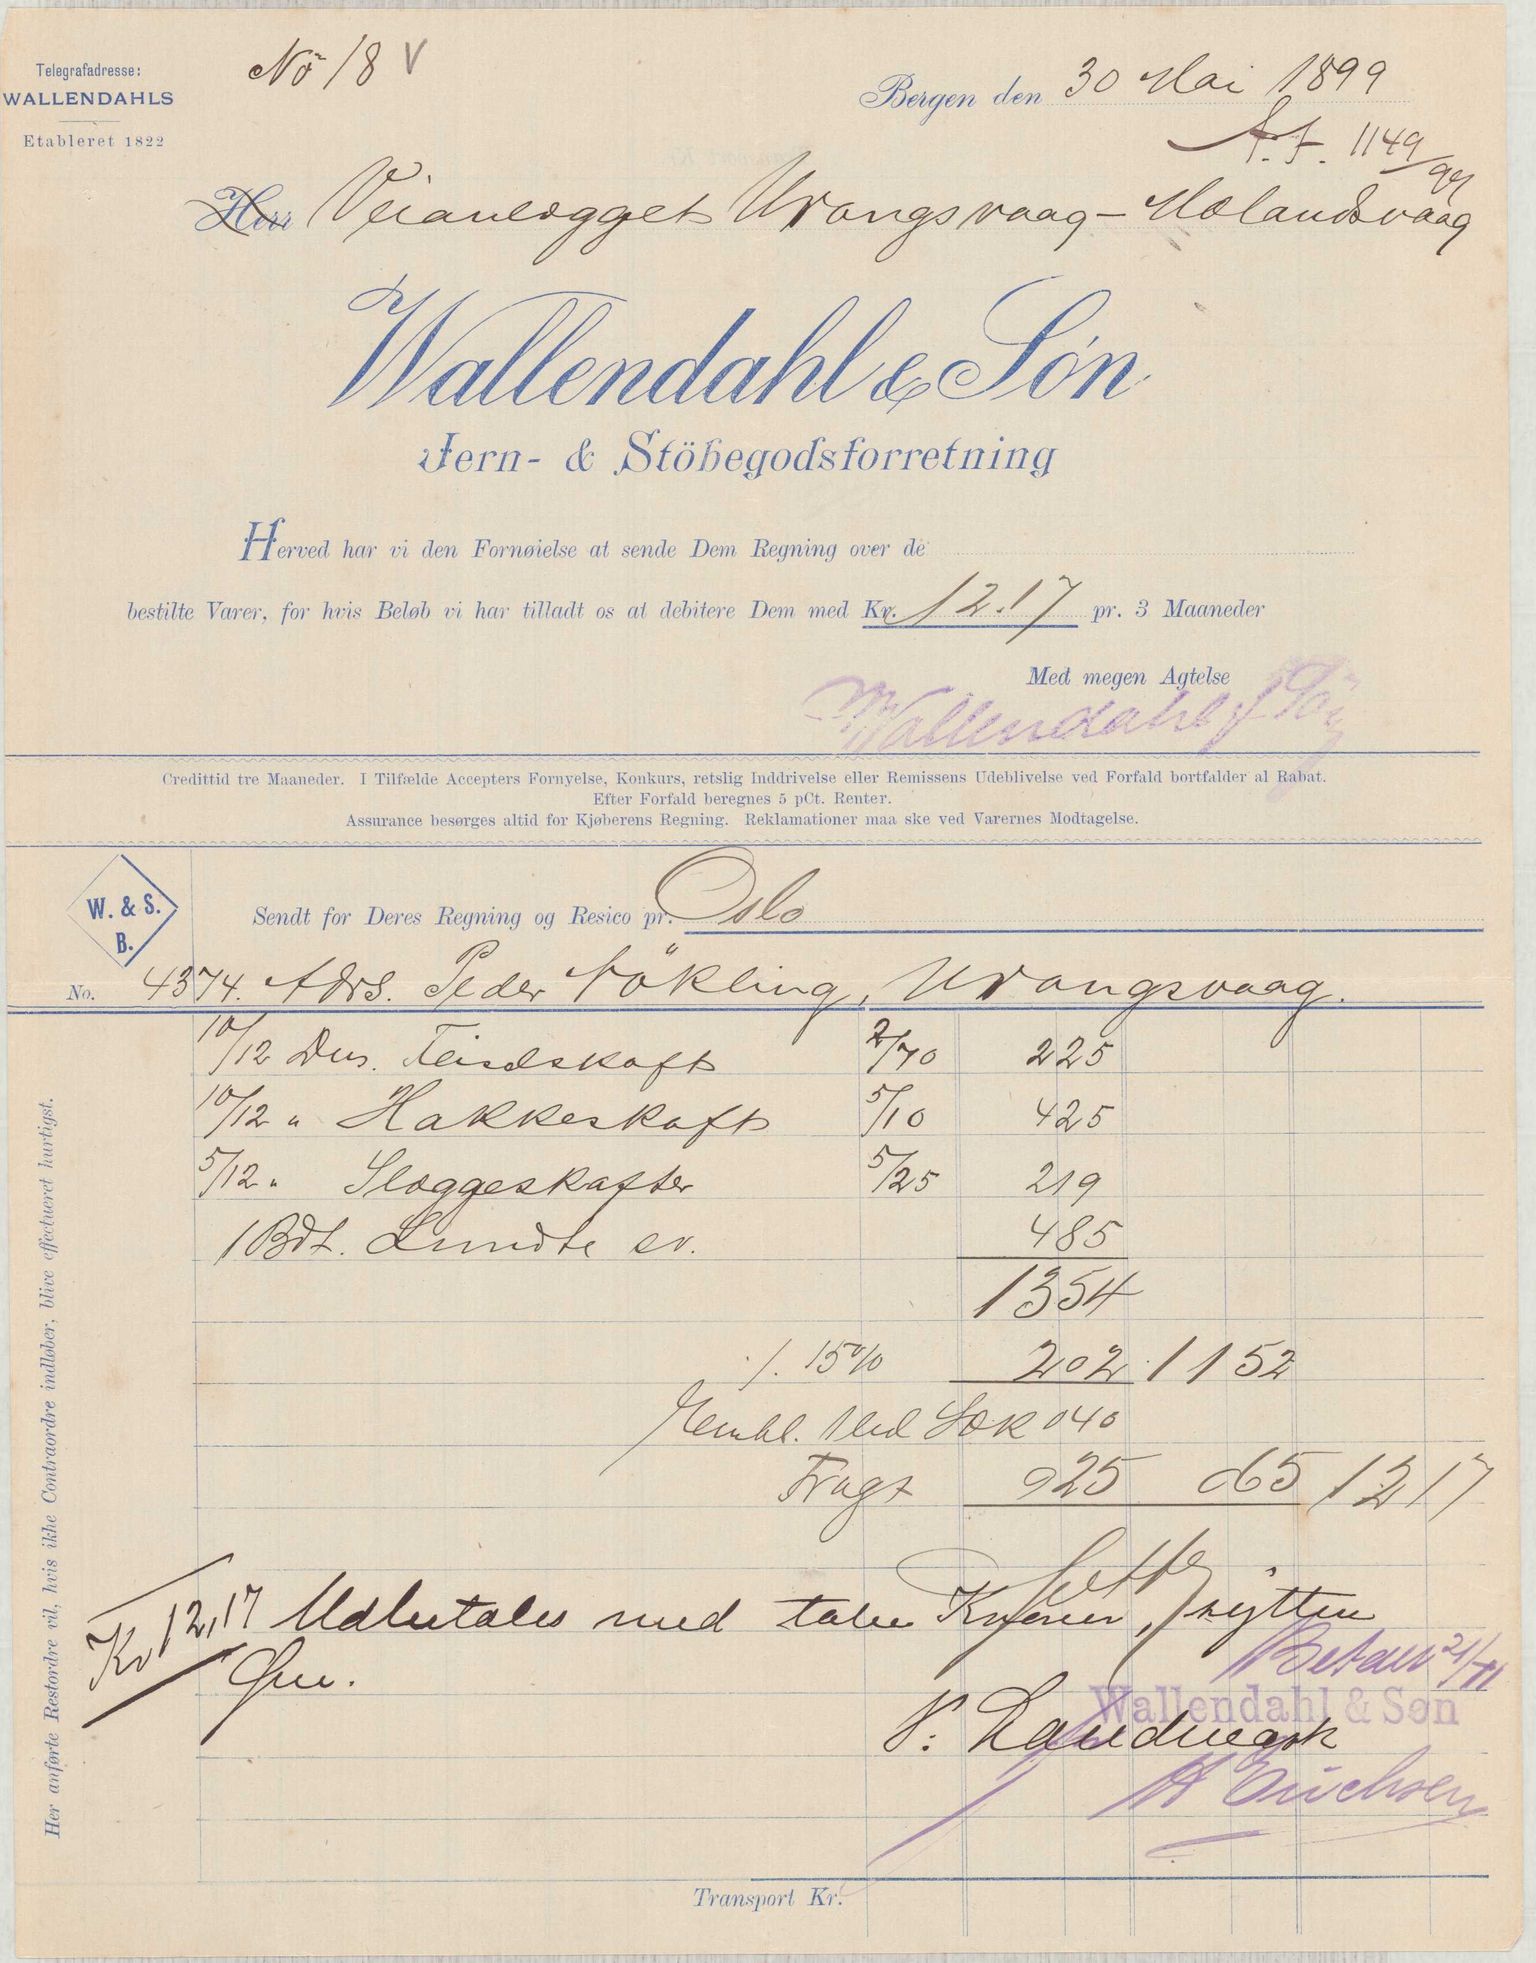 Telegrafadresse:
WALLENDAHLS
Etableret 1822
No 18 V
Bergen den 30 Mai 1899
A.J. 1149/99
Herr Veianlægget Vrangsvaag - Molandsvaag
Wallendahl & Søn
Jern- & Stöbegodsforretning
Herved har vi den Fornøielse at sende Dem Regning over de
bestilte Varer, for hvis Beløb vi har tilladt os at debitere Dem med Kr. 12.17 pr. 3 Maaneder
Med megen Agtelse
Wallendahl & Søn
Credittid tre Maaneder. I Tilfælde Accepters Fornyelse, Konkurs, retslig Inddrivelse eller Remissens Udeblivelse ved Forfald bortfalder al Rabat.
Efter Forfald beregnes 5 pCt. Renter.
Assurance besørges altid for Kjøberens Regning. Reklamationer maa ske ved Varernes Modtagelse.
W. & S.
B.
Sendt for Deres Regning og Resico pr. Oslo
No. 4374. Adrs. Peder Nökling, Vrangsvaag.
10/12 Dus. Feiselskaft 2/70 225
10/12 " Hakkeskaft 5/10 425
5/12 " Slæggeskafter 5/25 219
1 Bdt. Lundte sv. 485
1354
./. 15% 202 1152
Embl. 1 Sæk 040
Fragt 025 065 1217
Kr 12,17 Udbetales med tolv Kroner, sytten
Øre.
Betalt 21/11
Wallendahl & Søn
P. Landmark
H Erichsen
Her anførte Restordre vil, hvis ikke Contraordre indløber, blive effectueret hurtigst.
Transport Kr.